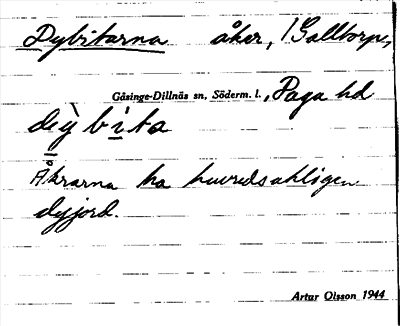 Dybitarna åker, 1 Galltorpe,
Gåsinge-Dillnäs sn, Söderm. l., Daga hd
dey̆̀ bita
Åkrarna ha huvudsakligen
dyjord.
Artur Olsson 1944